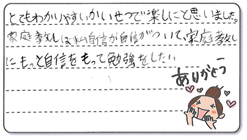 とてもわかりやすいかいせつで楽しにと思いました。
家庭教しは私自信が自信がついて、家庭教し
にもっと自信をもって勉強をしたい
ありがとう